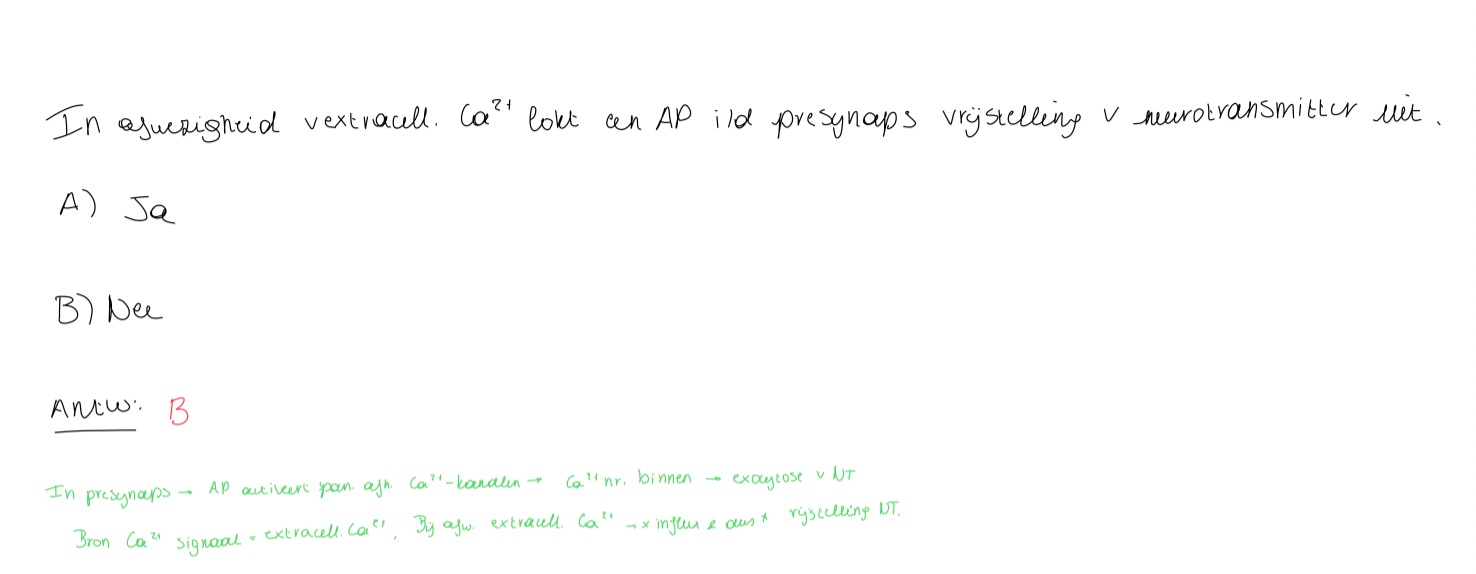 In afwezigheid v extracell. Ca²⁺ lokt een AP i/d presynaps vrijstelling v neurotransmitter uit.
A) Ja
B) Nee
Antw: B
In presynaps → AP activeert span. afh. Ca²⁺-kanalen → Ca²⁺ nr. binnen → exocytose v NT
Bron Ca²⁺ signaal = extracell. Ca²⁺, Bij afw. extracell. Ca²⁺ → x influx & dus x vrijstelling NT.